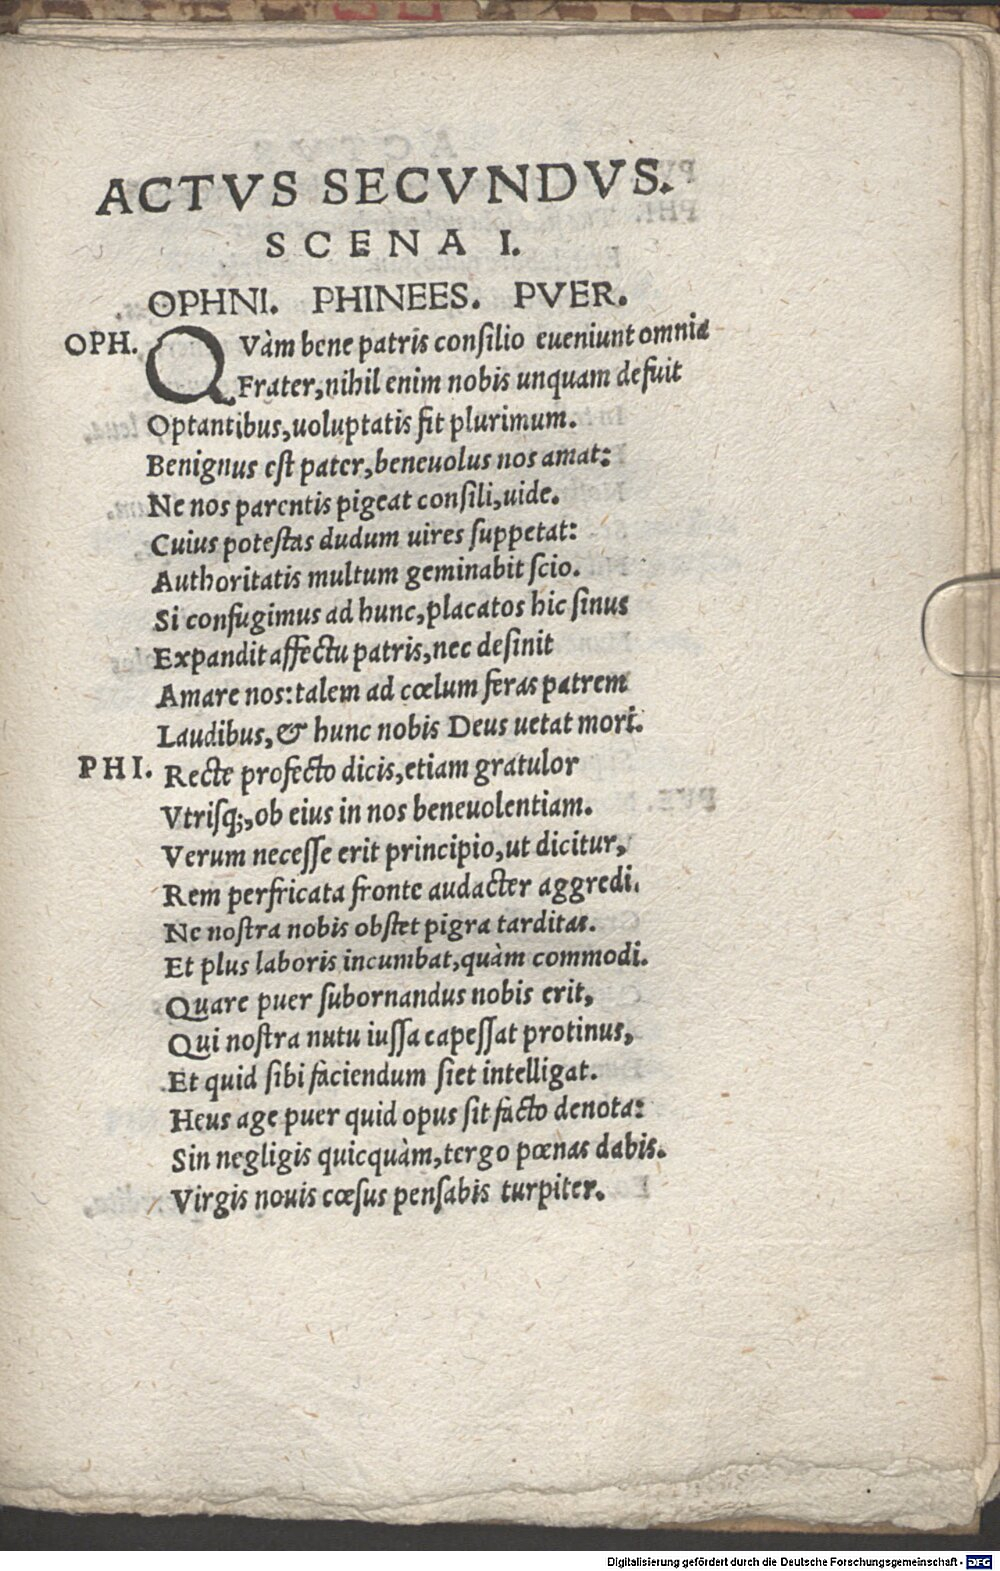 ACTVS SECVNDVS.
SCENA I.
OPHNI. PHINEES. PVER.
OPH. QVàm bene patris consilio eueniunt omnia
Frater, nihil enim nobis unquam defuit
Optantibus, uoluptatis fit plurimum.
Benignus est pater, beneuolus nos amat:
Ne nos parentis pigeat consili, uide.
Cuius potestas dudum uires suppetat:
Authoritatis multum geminabit scio.
Si confugimus ad hunc, placatos hic sinus
Expandit affectu patris, nec desinit
Amare nos: talem ad cœlum feras patrem
Laudibus, & hunc nobis Deus uetat mori.
PHI. Recte profecto dicis, etiam gratulor
Vtrisq;, ob eius in nos beneuolentiam.
Verum necesse erit principio, ut dicitur,
Rem perfricata fronte audacter aggredi.
Ne nostra nobis obstet pigra tarditas.
Et plus laboris incumbat, quàm commodi.
Quare puer subornandus nobis erit,
Qui nostra nutu iussa capessat protinus,
Et quid sibi faciendum siet intelligat.
Heus age puer quid opus sit facto denota:
Sin negligis quicquàm, tergo pœnas dabis.
Virgis nouis cœsus pensabis turpiter.
Digitalisierung gefördert durch die Deutsche Forschungsgemeinschaft - DFG